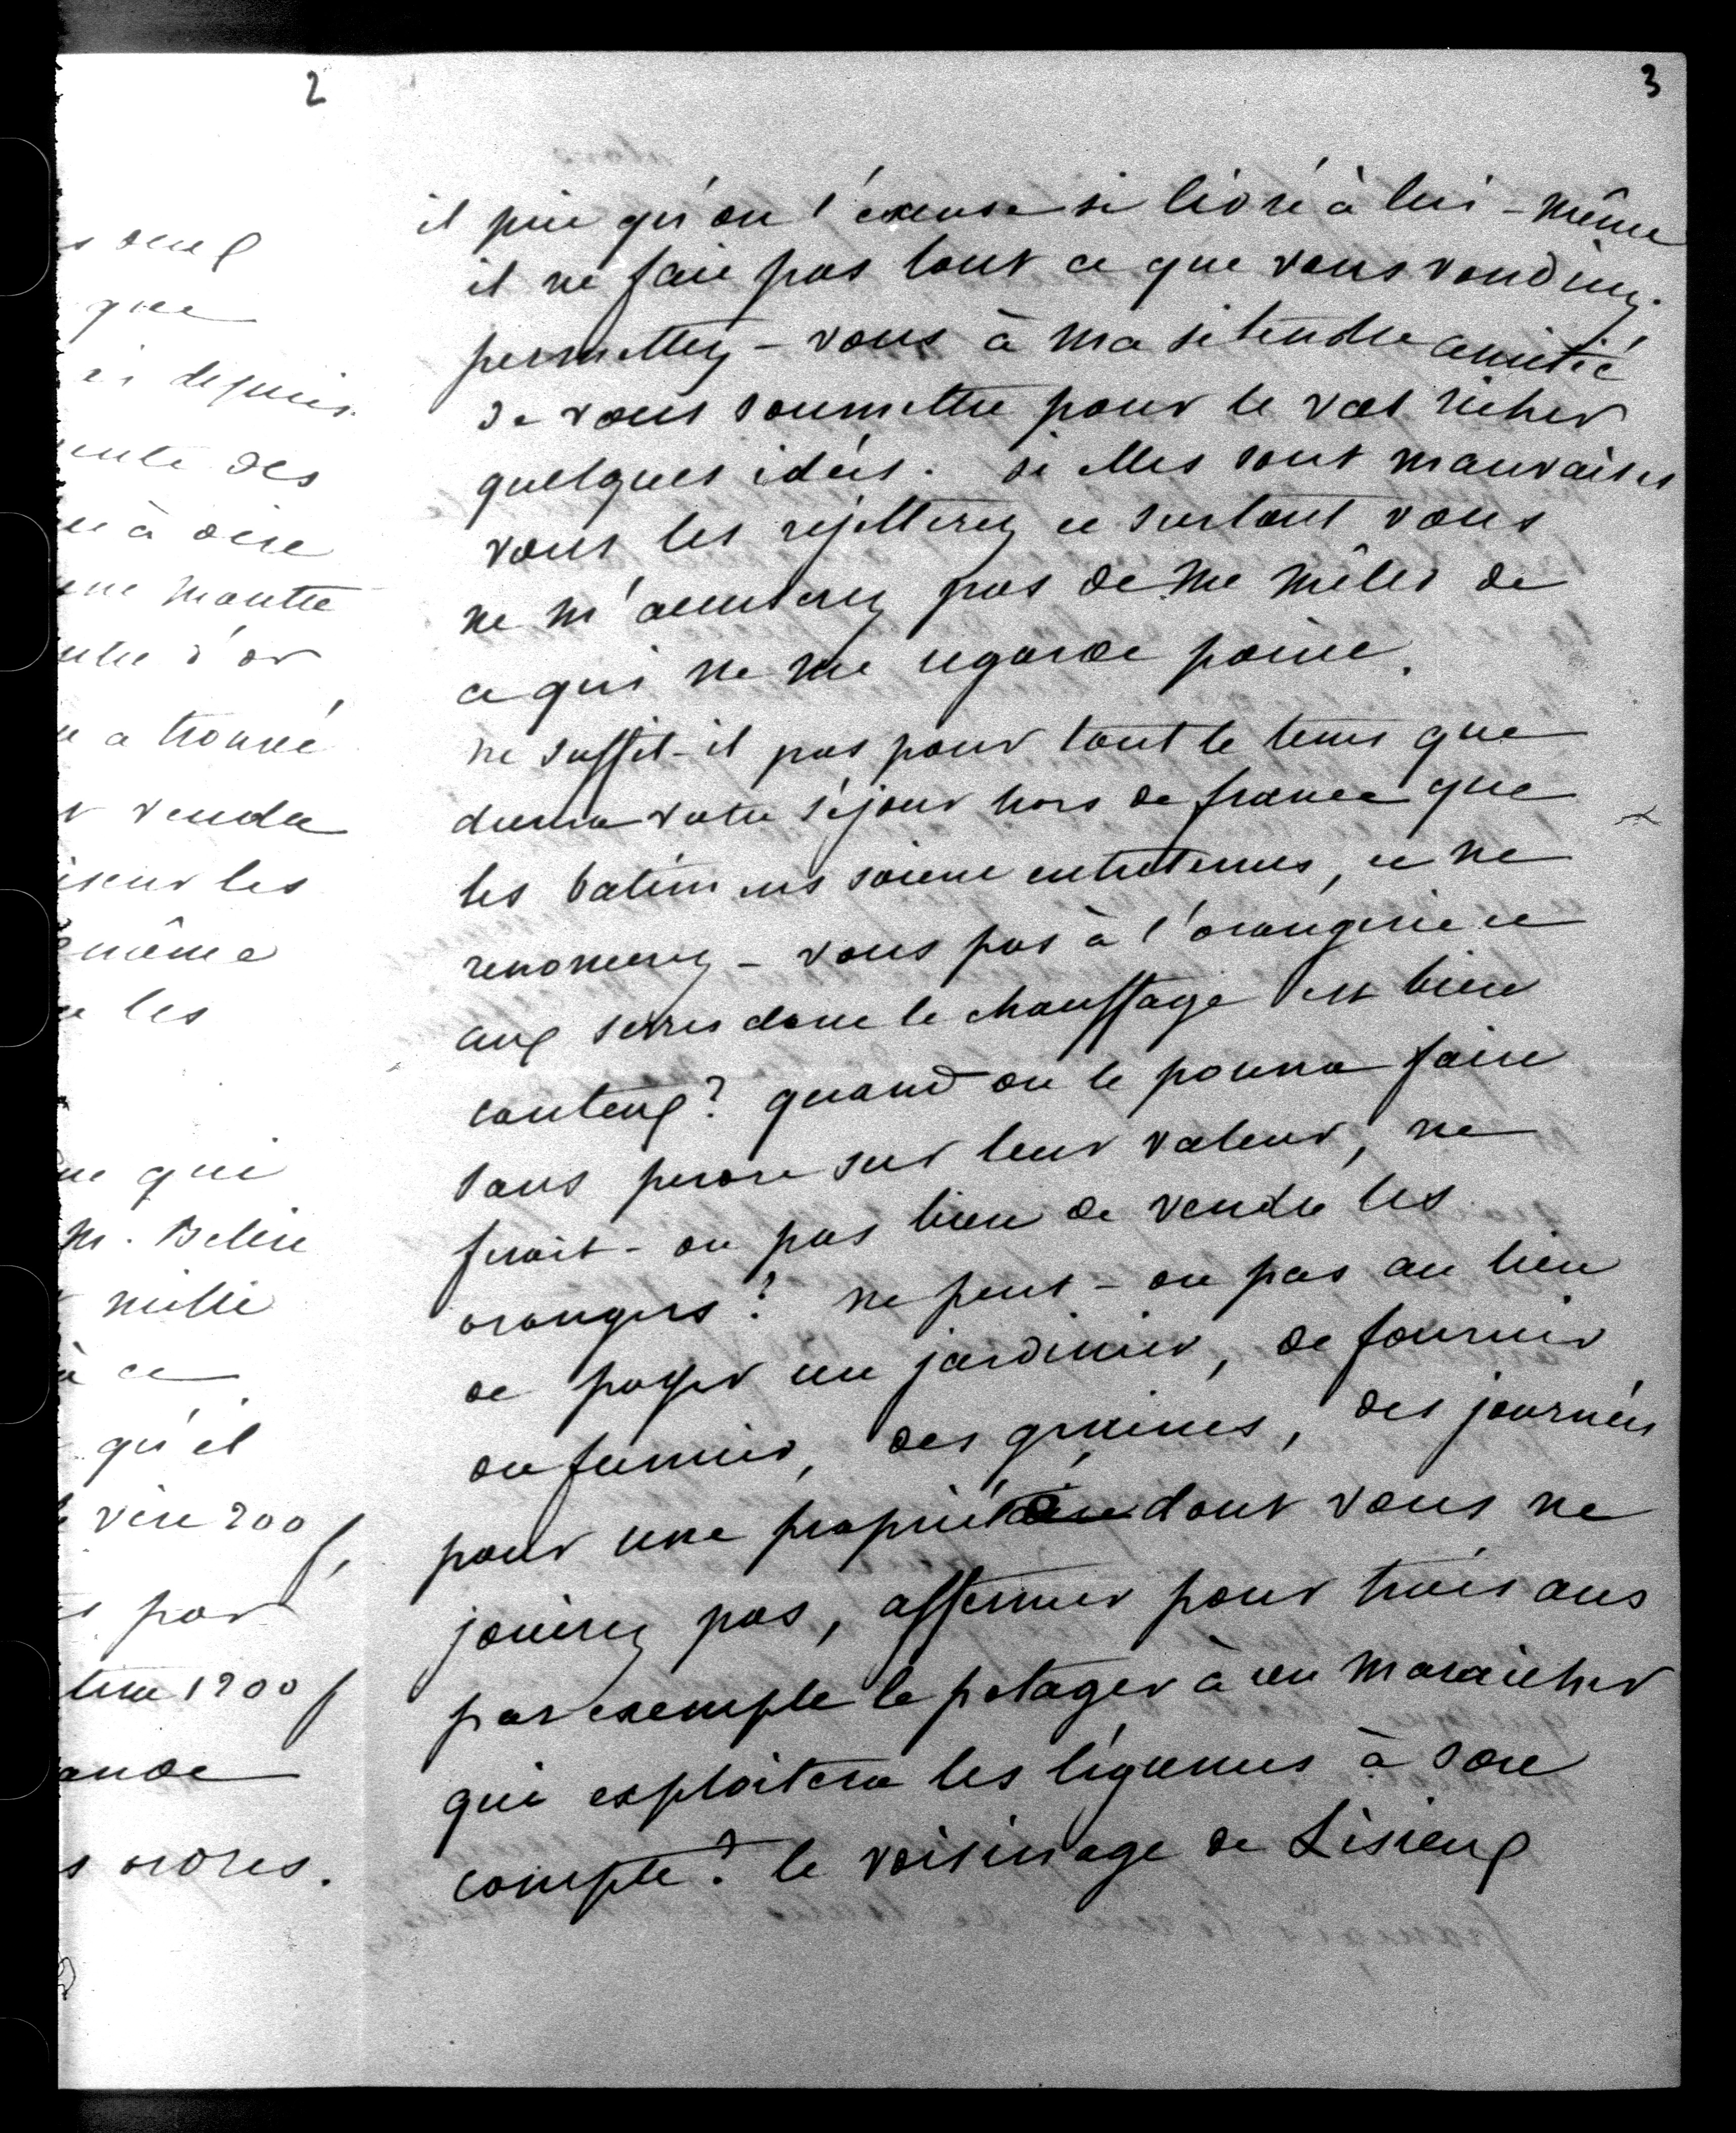 2
s deux
que
is depuis
ente des
à dire
une montre
ntre d'or
a trouvé
t vendu
ieur les
même
les
ne qui
M. Belin
mille
à ce
qu'il
vin 200 f,
s par
1200 f
ande
s ordres.
3
il prie qu'on l'excuse si livré à lui-même
il ne fait pas tout ce que vous voudriez.
permettez-vous à ma si tendre amitié
de vous soumettre pour le val richer
quelques idées. si elles sont mauvaises
vous les rejetterez et surtout vous
ne m'accuserez pas de me mêler de
ce qui ne me regarde point.
ne suffit-il pas pour tout le tems que
durera votre séjour hors de france que
les batimens soient entretenus, et ne
renoncerez-vous pas à l'orangerie et
aux serres dont le chauffage est bien
couteux? quand on le pourra faire
sans perdre sur leur valeur, ne
ferait-on pas bien de vendre les
orangers? ne peut-on pas au lieu
de payer un jardinier, de fournir
du fumier, des graines, des journées
pour une propriété dont vous ne
jouirez pas, affermer pour trois ans
par exemple le potager à un maraicher
qui exploitera les légumes à son
compte? le voisinage de Lisieux